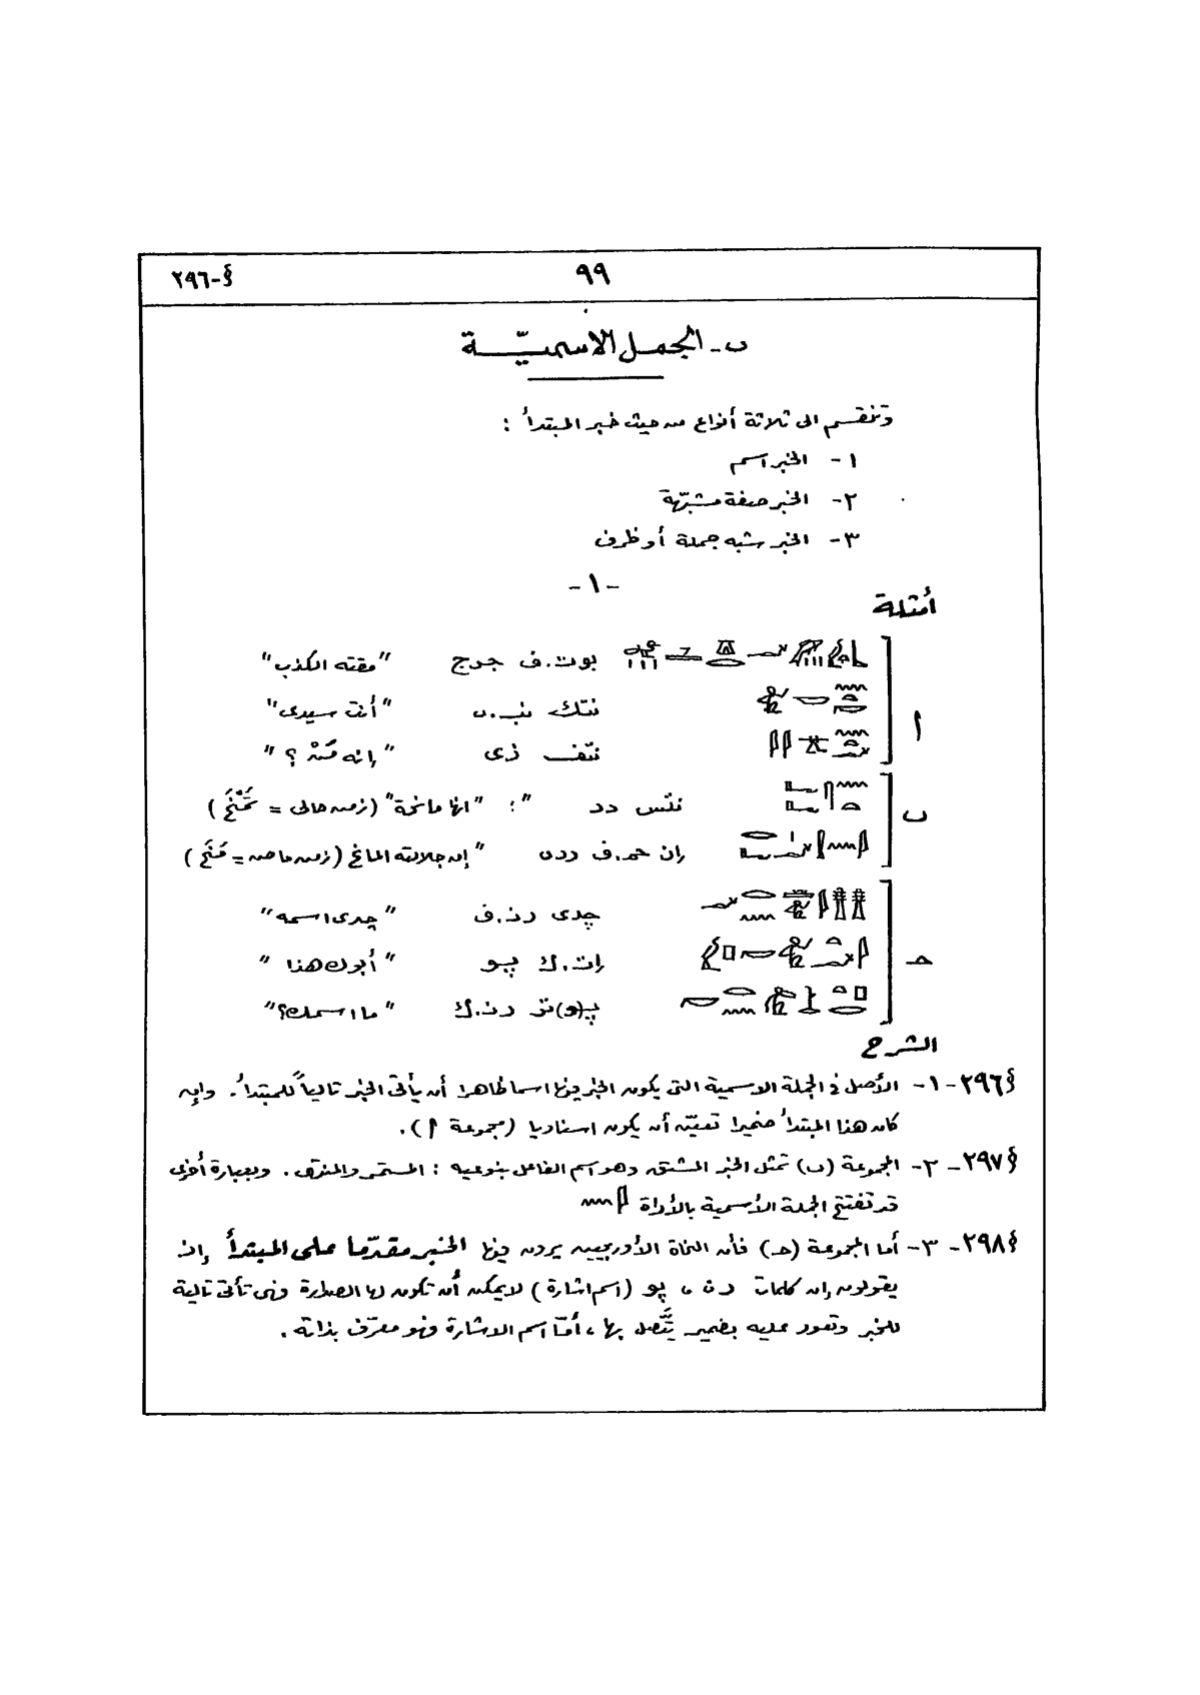 §-٢٩٦
٩٩
ب- الجمل الاسميّة
وتنقسم الى ثلاثة أنواع من حيث خبر المبتدأ :
١- الخبر اسم
٢- الخبر صفة مشبّهة
٣- الخبر شبه جملة أو ظرف
-١-
أمثلة
بوت.ف جرج "مقته الكذب"
أ
ننتك نب.ى "أنت سيدى"
ننتف زى "إنه مَنْ ؟"
ب
ننتس دد "إنها مانحة" (زمن حالى = تَمْنَح)
إن حم.ف ددى "إن جلالته المانح (زمن ماض = مَنَح)
چدى رن.ف "چدى اسمه"
حـ
إت.ك پو "أبوك هذا"
پ(و)تر رن.ك "ما اسمك؟"
الشرح
§٢٩٦-١- الأصل فى الجملة الاسمية التى يكون الخبر فيها اسما ظاهرا أن يأتى الخبر تالياً للمبتدأ. وإن
كان هذا المبتدأ ضميرا تعيّن أن يكون اسناديا (مجموعة أ).
§٢٩٧-٢- المجموعة (ب) تمثل الخبر المشتق وهو اسم الفاعل بنوعيه : المستمر والمنتهى. وبعبارة أخرى
قد تفتتح الجملة الأسمية بالأداة
§٢٩٨-٣- أما المجموعة (حـ) فأن النحاة الأوربيين يرون فيها الخبر مقدّما على المبتدأ إذ
يقولون إن كلمات رن ، پو (اسم اشارة) لايمكن أن تكون لها الصدارة فهى تأتى تالية
للخبر وتعود عليه بضمير يتَّصل بها، أمّا اسم الاشارة فهو معرّف بذاته.